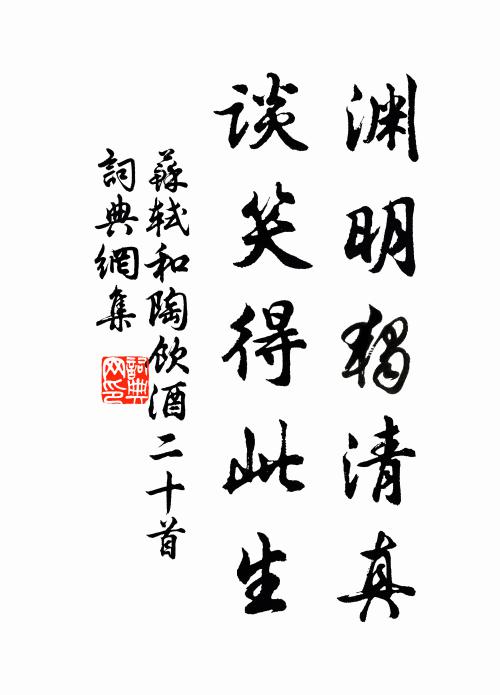 渊明獨清真
谈笑得此生
蘇軾和陶飲酒二十首
詞典網集
詞典网印